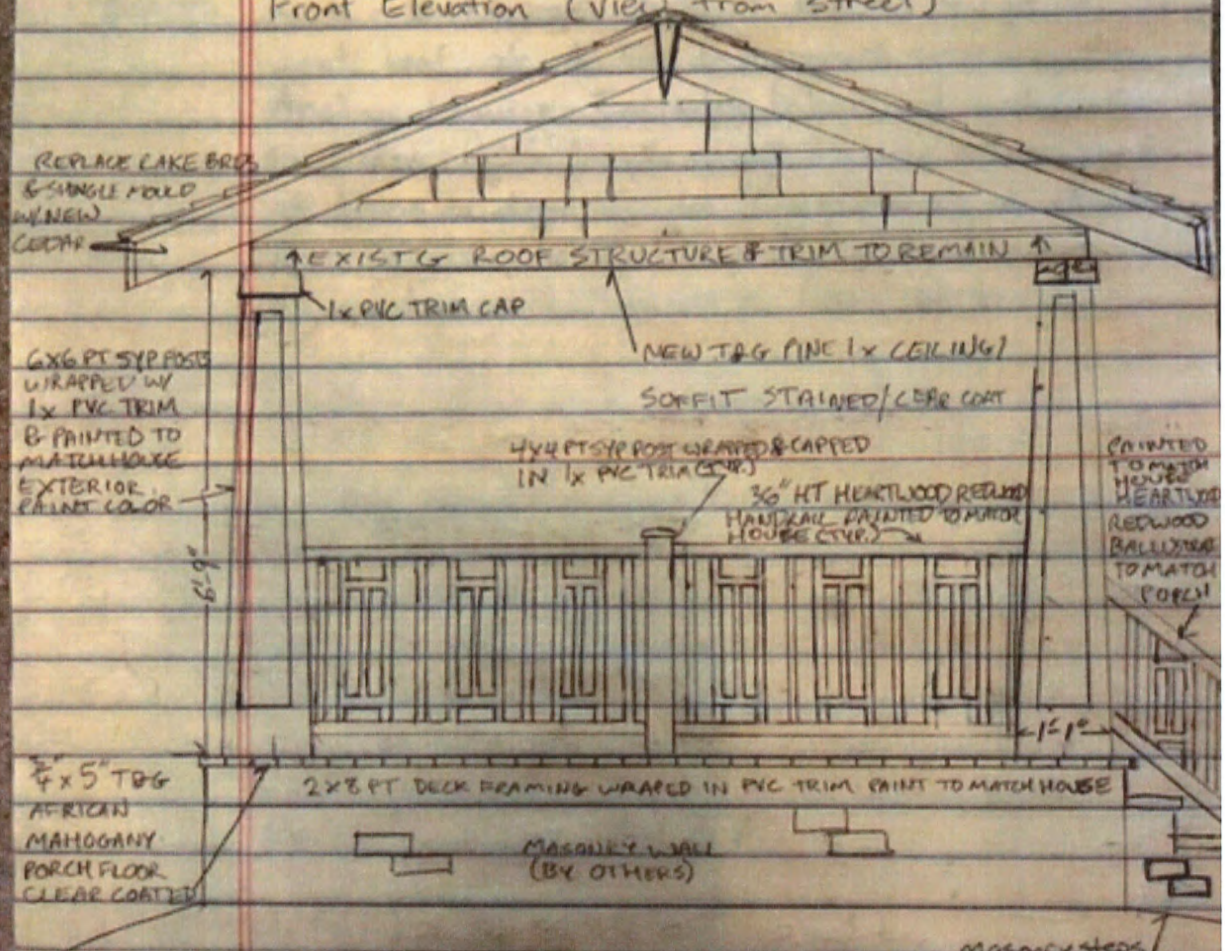 Front Elevation (View from Street)
REPLACE RAKE BRDS
& SHINGLE MOULD
W/NEW
CEDAR
EXIST'G ROOF STRUCTURE & TRIM TO REMAIN
1x PVC TRIM CAP
NEW T&G PINE 1x CEILING/
SOFFIT STAINED/CLEAR COAT
6X6 PT SYP POSTS
WRAPPED W/
1x PVC TRIM
& PAINTED TO
MATCH HOUSE
EXTERIOR
PAINT COLOR
6'-9"
4X4 PT SYP POST WRAPPED & CAPPED
IN 1x PVC TRIM (TYP.)
36" HT HEARTWOOD REDWOOD
HANDRAIL PAINTED TO MATCH
HOUSE (TYP.)
PAINTED
TO MATCH
HOUSE
HEARTWOOD
REDWOOD
TO MATCH
PORCH
1'-1"
5/4" x 5" T&G
AFRICAN
MAHOGANY
PORCH FLOOR
CLEAR COATED
2X8 PT DECK FRAMING WRAPED IN PVC TRIM PAINT TO MATCH HOUSE
MASONRY WALL
(BY OTHERS)
MASONRY STEPS